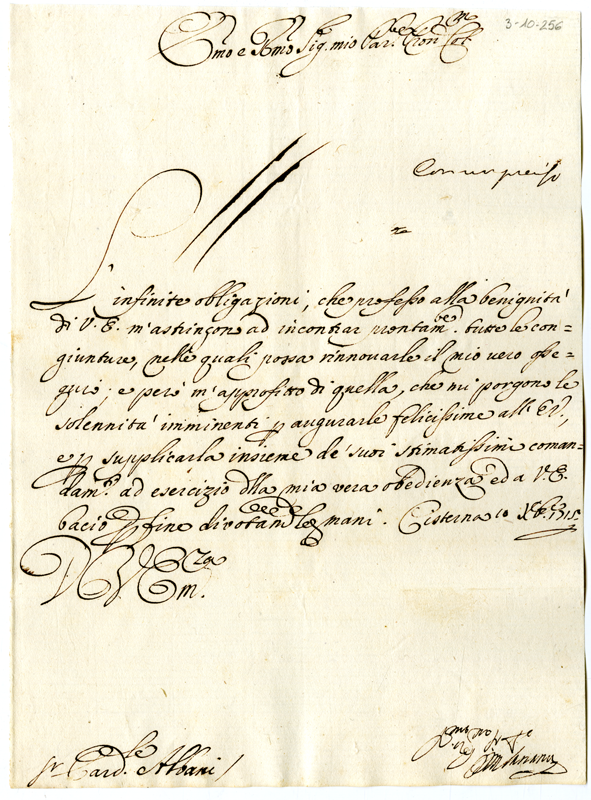 3-10-256
Em̃o e Rm̃o Sig. mio
L'infinite obligazioni, che professo alla benignità
di V. E. m'astringon ad incontrar prontam.te tutte le con=
giunture, nelle quali possa rinnovarle il mio vero osse=
quio; e però m'approfitto di quella, che mi porgono le
solennità imminenti p augurarle felicissime all' EV,
e p supplicarla insieme de' suoi stimatissimi coman=
dam.ti ad esercizio della mia vera obedienza ed a V. E.
bacio p fine divotam.te le mani. Cisterna 10 Xbre 1715
D V Em.za
Sr Card.le Albani